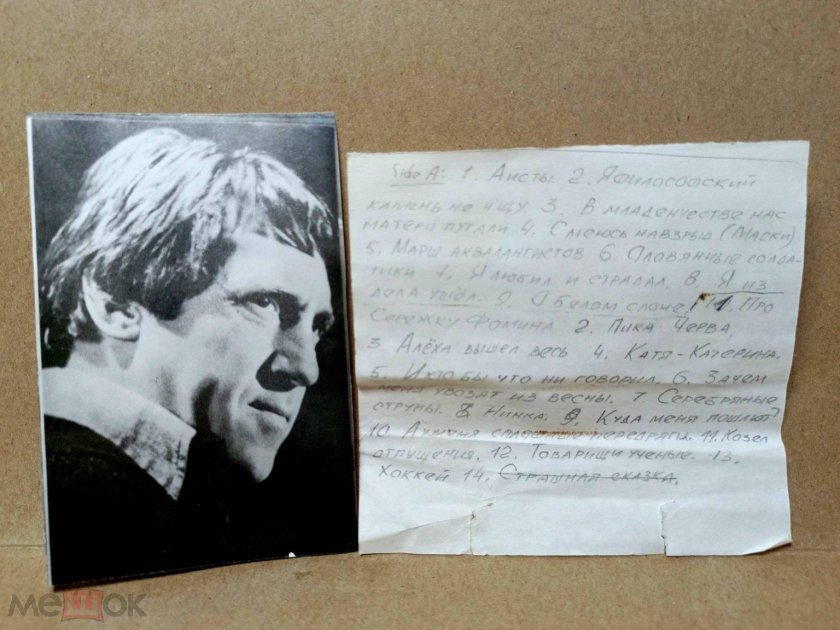 Side A: 1. Аисты. 2. Я философский
камень не ищу. 3. В младенчестве нас
матери пугали 4. Смеюсь навзрыд (Маски)
5. Марш аквалангистов 6. Оловянные солда-
тики 7. Я любил и страдал. 8. Я из
дела ушёл. 9. О белом слоне. 1. Про
Серёжку Фомина. 2. Пика Черва
3 Алёха вышел весь 4. Катя-Катерина.
5. И кто бы что ни говорил. 6. Зачем
меня увозят из весны. 7. Серебряные
струны. 8. Нинка. 9. Куда меня пошлют?
10. сплошные передряги. 11. Козел
отпущения. 12. Товарищи ученые. 13.
Хоккей 14. Страшная сказка.
мешок